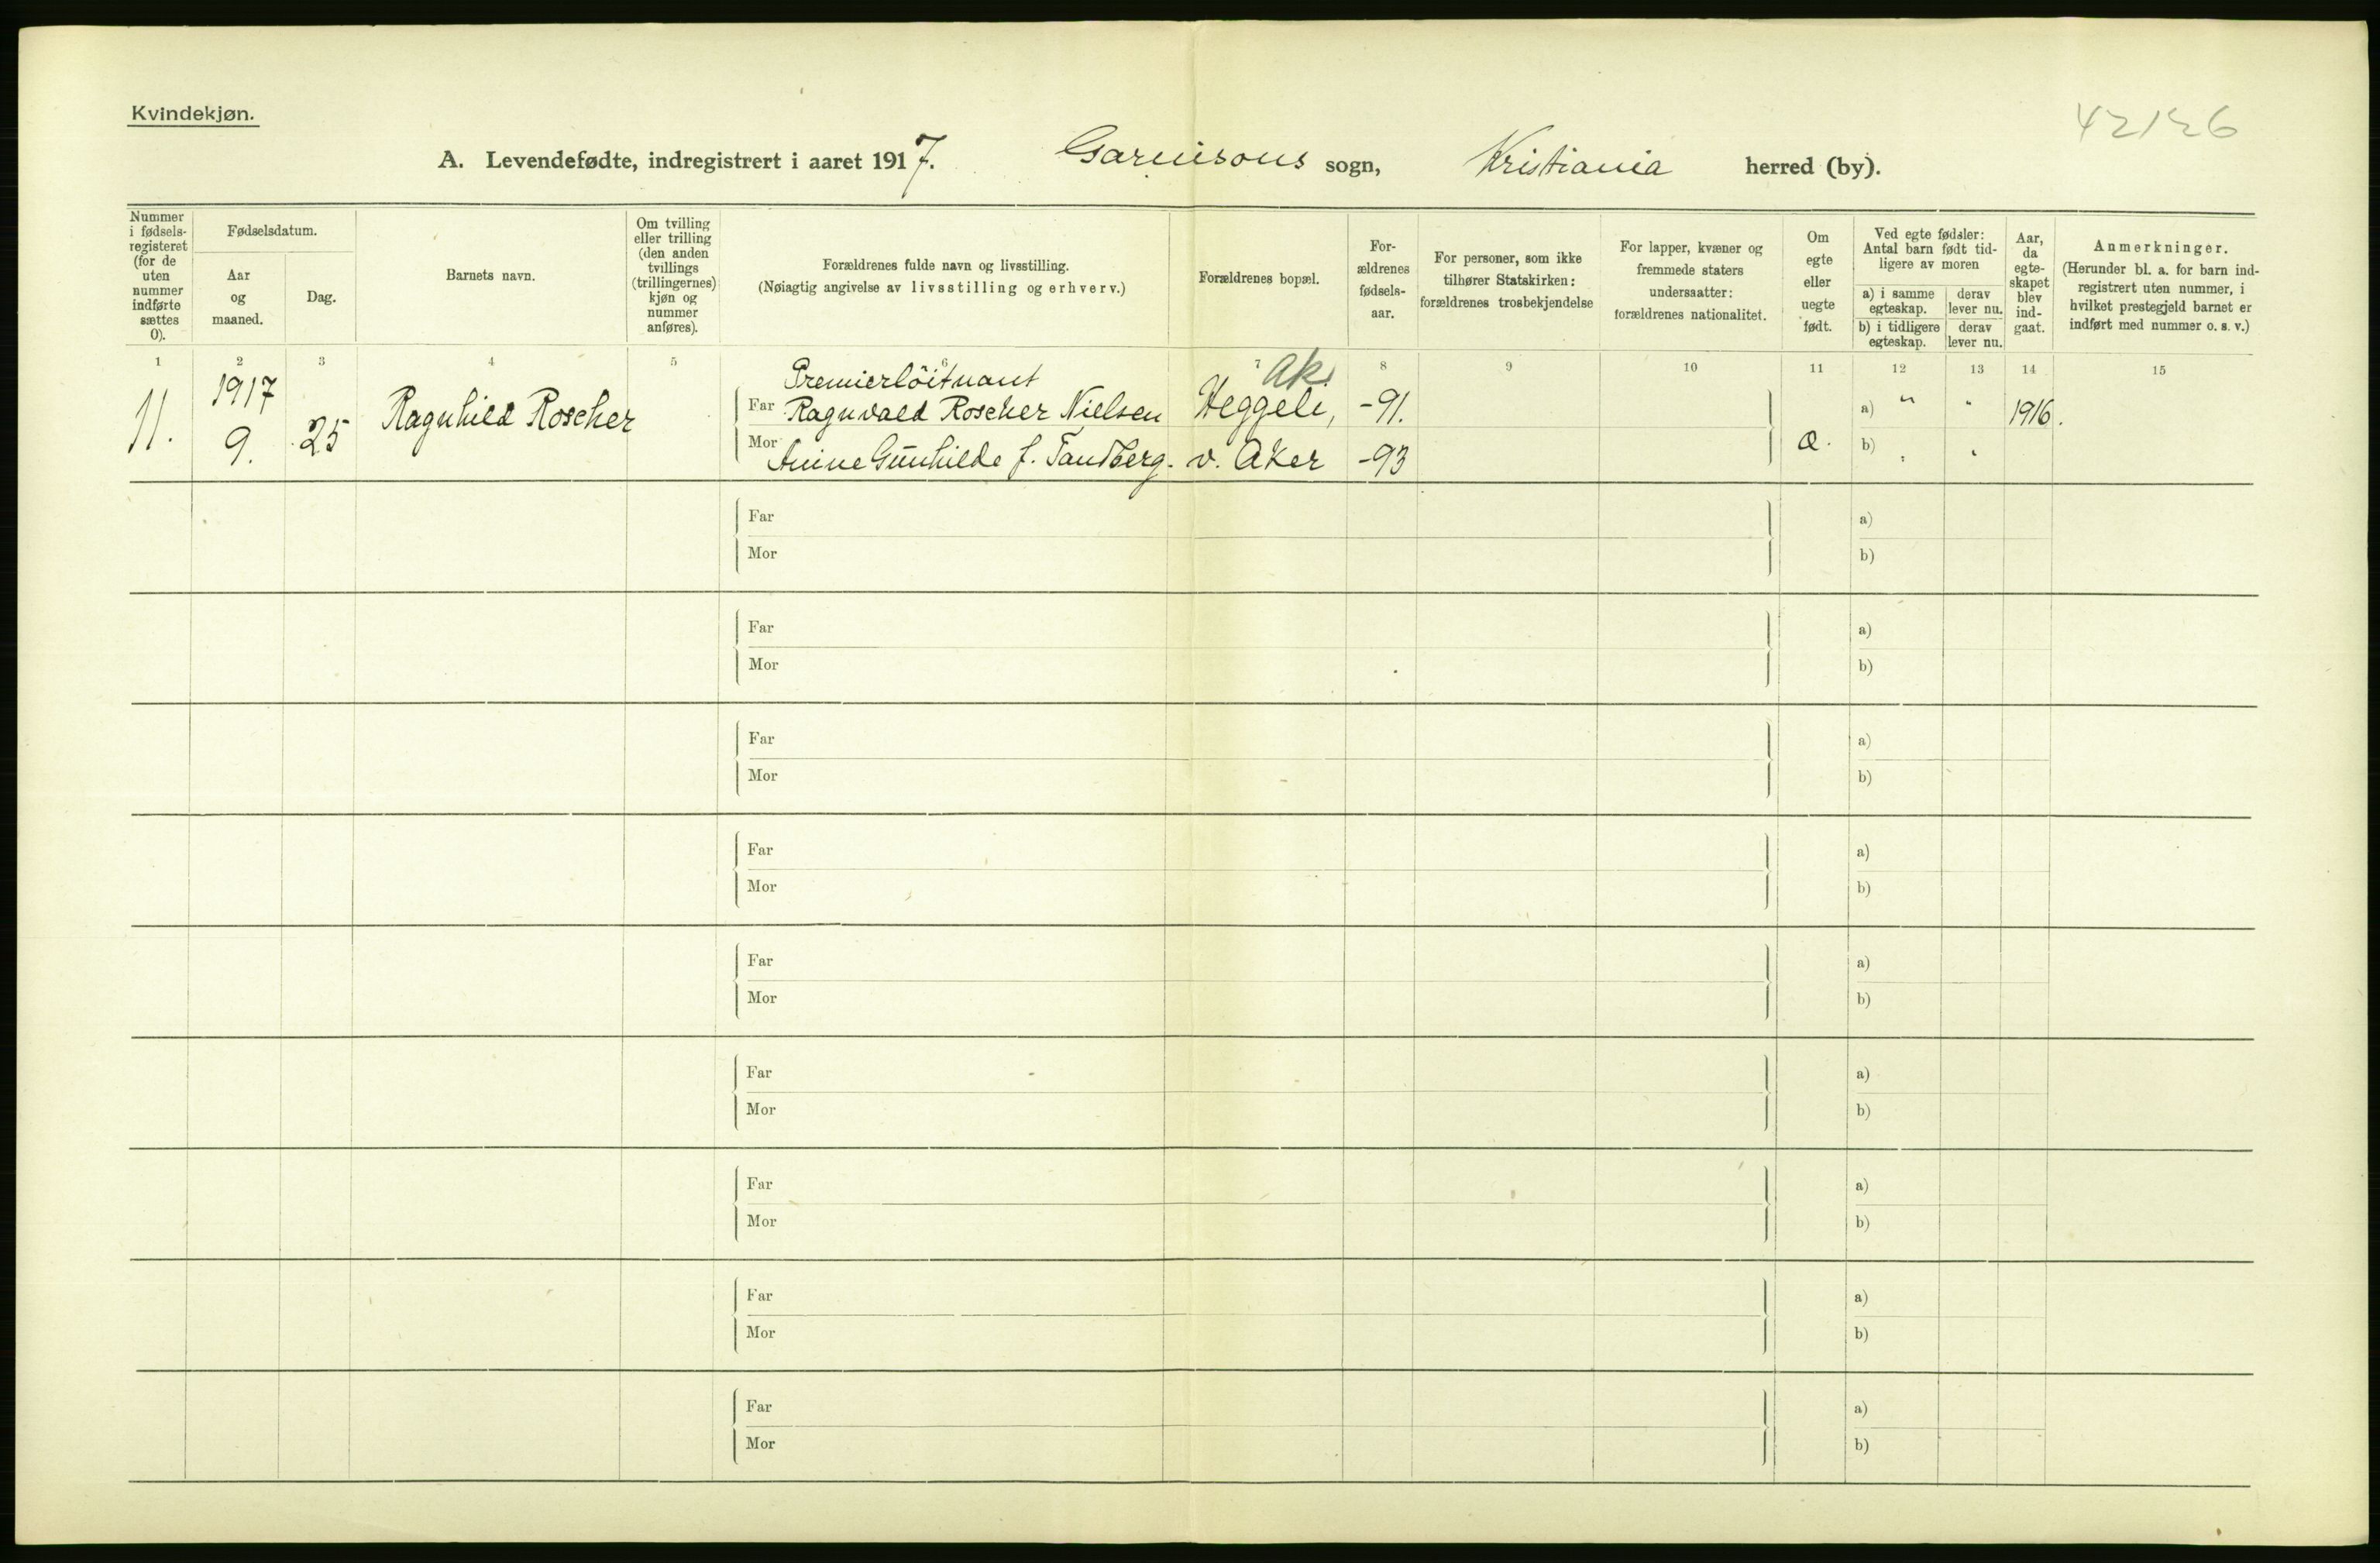 Kvindekjøn.
42126
A. Levendefødte, indregistrert i aaret 1917. Garnisons sogn, Kristiania herred (by).
Nummer i fødsels-registeret (for de uten nummer indførte sættes 0).
Fødselsdatum.
Aar og maaned.
Dag.
Barnets navn.
Om tvilling eller trilling (den anden tvillings (trillingernes) kjøn og nummer anføres).
Forældrenes fulde navn og livsstilling.
(Nøiagtig angivelse av livsstilling og erhverv.)
Forældrenes bopæl.
For-ældrenes fødsels-aar.
For personer, som ikke tilhører Statskirken: forældrenes trosbekjendelse
For lapper, kvæner og fremmede staters undersaatter: forældrenes nationalitet.
Om egte eller uegte født.
Ved egte fødsler: Antal barn født tid-ligere av moren
a) i samme egteskap.
derav lever nu.
b) i tidligere egteskap.
derav lever nu.
Aar, da egte-skapet blev ind-gaat.
Anmerkninger.
(Herunder bl. a. for barn ind-registrert uten nummer, i hvilket prestegjeld barnet er indført med nummer o. s. v.)
1 2 3 4 5 6 7 8 9 10 11 12 13 14 15
Premierlöitnant Ak.
11. 1917 9. 25 Ragnhild Roscher Far Ragnvald Roscher Nielsen Heggeli, -91. a) " " 1916.
Mor Anine Gunhilde f. Tandberg. v. Aker -93 b) " "
Far a)
Mor b)
Far a)
Mor b)
Far a)
Mor b)
Far a)
Mor b)
Far a)
Mor b)
Far a)
Mor b)
Far a)
Mor b)
Far a)
Mor b)
Far a)
Mor b)